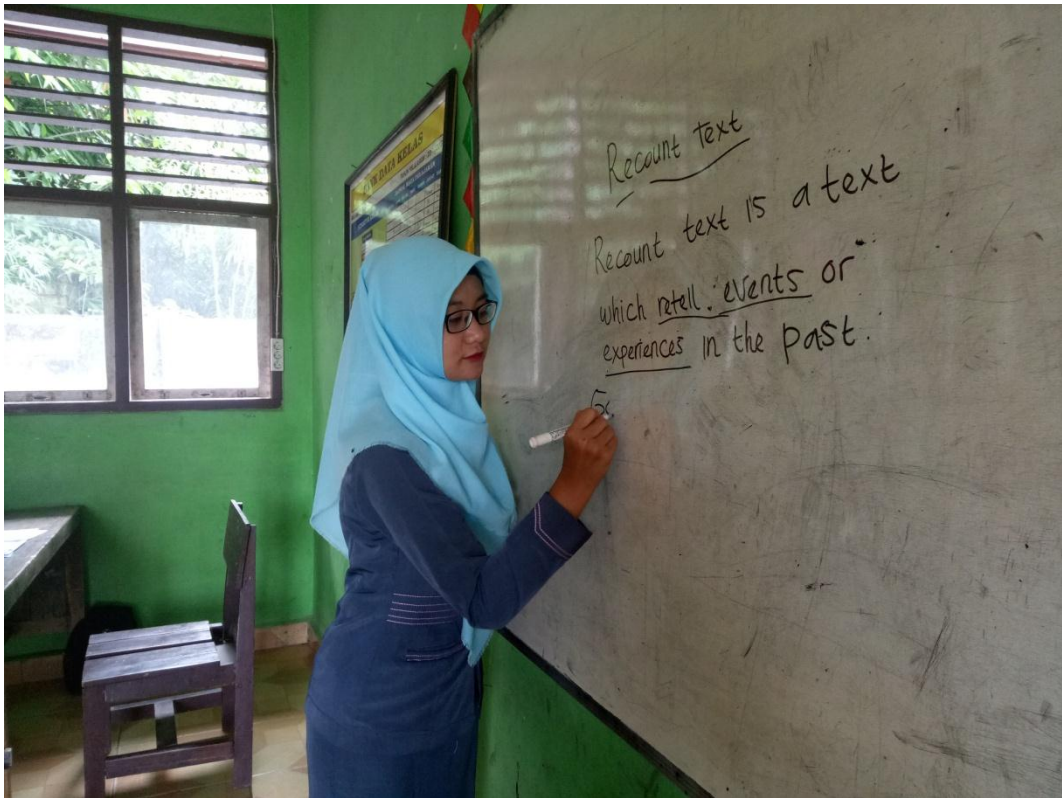 DATA KELAS
Recount Text
Recount text is a text
which retell events or
experiences in the past.